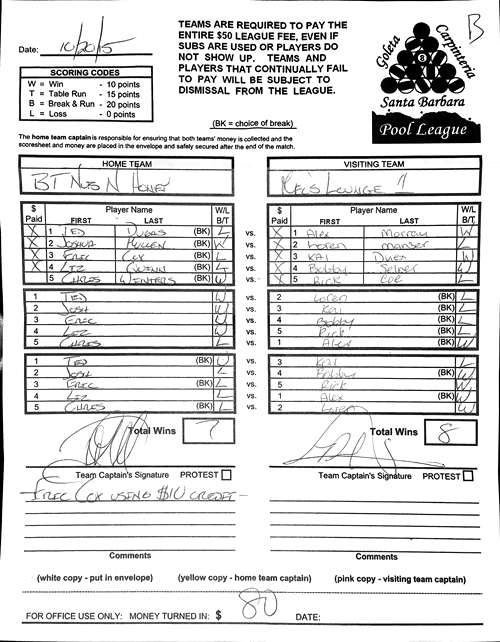 B
Date: 10/20/15
TEAMS ARE REQUIRED TO PAY THE
ENTIRE $50 LEAGUE FEE, EVEN IF
SUBS ARE USED OR PLAYERS DO
NOT SHOW UP. TEAMS AND
PLAYERS THAT CONTINUALLY FAIL
TO PAY WILL BE SUBJECT TO
DISMISSAL FROM THE LEAGUE.
Goleta
Carpinteria
Santa Barbara
Pool League
SCORING CODES
W = Win - 10 points
T = Table Run - 15 points
B = Break & Run - 20 points
L = Loss - 0 points
(BK = choice of break)
The home team captain is responsible for ensuring that both teams' money is collected and the
scoresheet and money are placed in the envelope and safely secured after the end of the match.
HOME TEAM
VISITING TEAM
BT Nuts N Honey
Kel's Lounge 1
$ Paid Player Name FIRST LAST W/L B/T
$ Paid Player Name FIRST LAST W/L B/T
X 1 TED DUGAS (BK) L vs. X 1 Alex Murray W
X 2 JOSHUA MULLEN W vs. X 2 Loren manser L
X 3 EREC COX (BK) L vs. X 3 KAI Dues W
X 4 LIZ QUINN (BK) L vs. X 4 Bobby Selner W
5 CHRIS WINTERS (BK) W vs. X 5 Rick Coe L
1 TED W vs. 2 Loren (BK) L
2 JOSH W vs. 3 Kai (BK) L
3 EREC W vs. 4 Bobby (BK) L
4 LIZ W vs. 5 Rick (BK) L
5 CHRIS L vs. 1 Alex (BK) W
1 TED (BK) W vs. 3 Kai L
2 JOSH L vs. 4 Bobby (BK) W
3 EREC (BK) L vs. 5 Rick W
4 LIZ L vs. 1 Alex (BK) W
5 CHRIS (BK) L vs. 2 Loren W
Total Wins 7
Total Wins 8
Team Captain's Signature PROTEST
Team Captain's Signature PROTEST
EREC COX USING $10 CREDIT-
Comments
Comments
(white copy - put in envelope) (yellow copy - home team captain) (pink copy - visiting team captain)
FOR OFFICE USE ONLY: MONEY TURNED IN: $ 80 DATE: